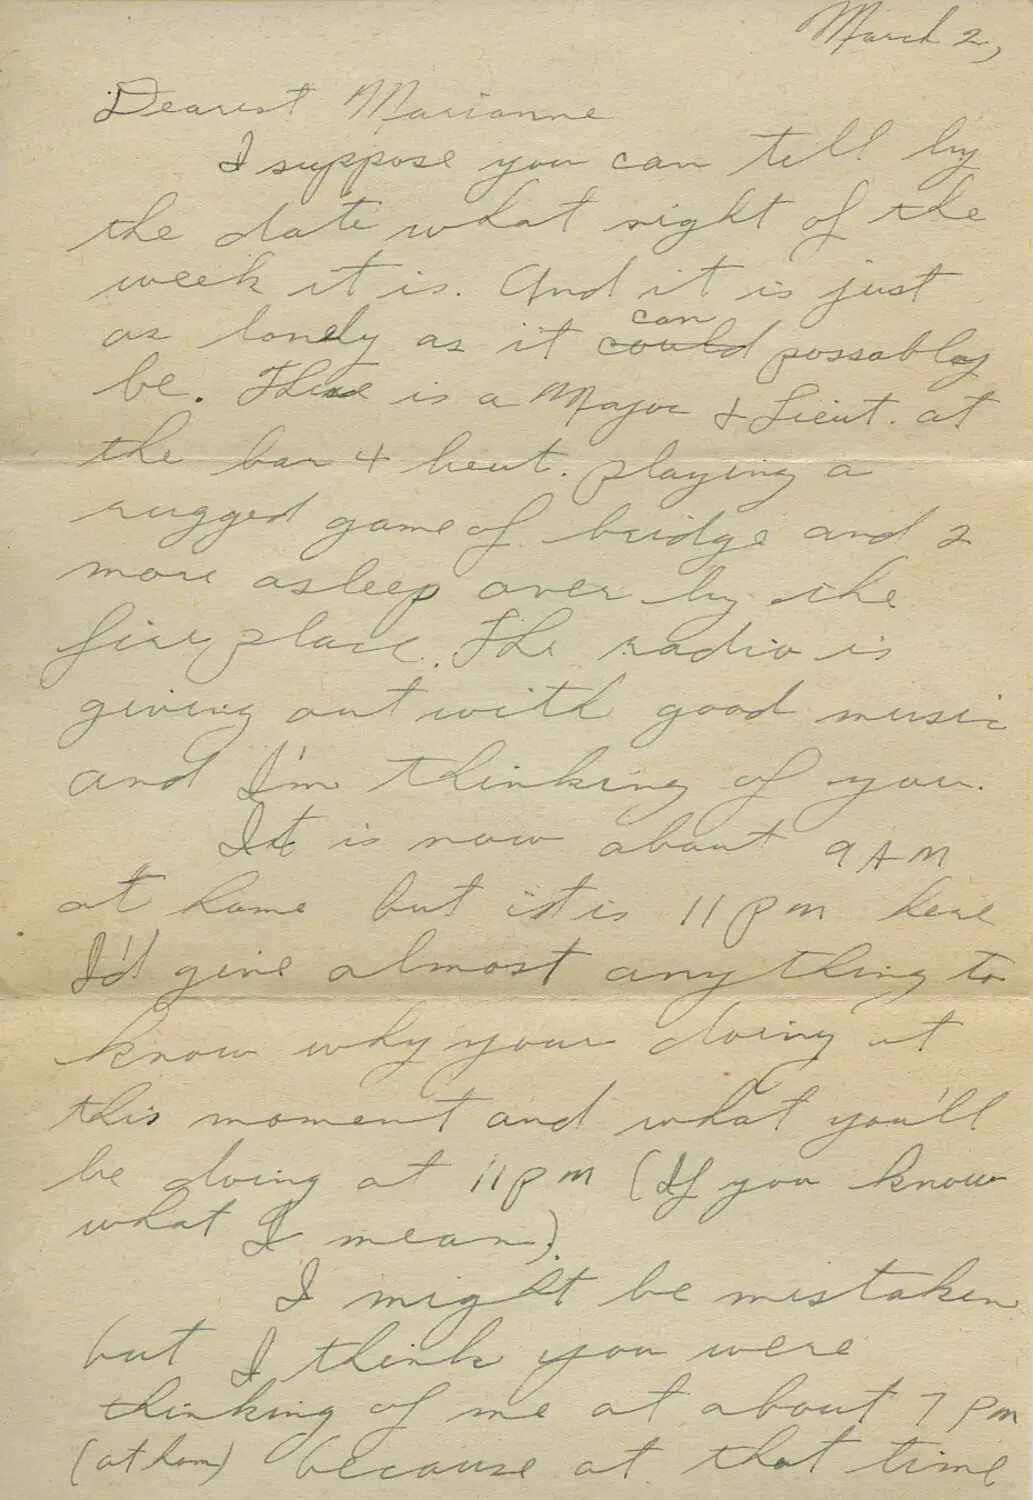 March 2,
Dearest Marianne
I suppose you can tell by
the date what night of the
week it is. And it is just
can
as lonely as it could possably
be. There is a Major & Lieut. at
the bar 4 Lieut. playing a
rugged game of bridge and 2
more asleep over by the
fire place. The radio is
giving out with good music
and I'm thinking of you.
It is now about 9 AM
at home but it is 11 pm here
I'd give almost anything to
know why your doing at
this moment and what you'll
be doing at 11 pm (If you know
what I mean).
I might be mistaken
but I think you were
thinking of me at about 7 pm
(at hom) because at that time